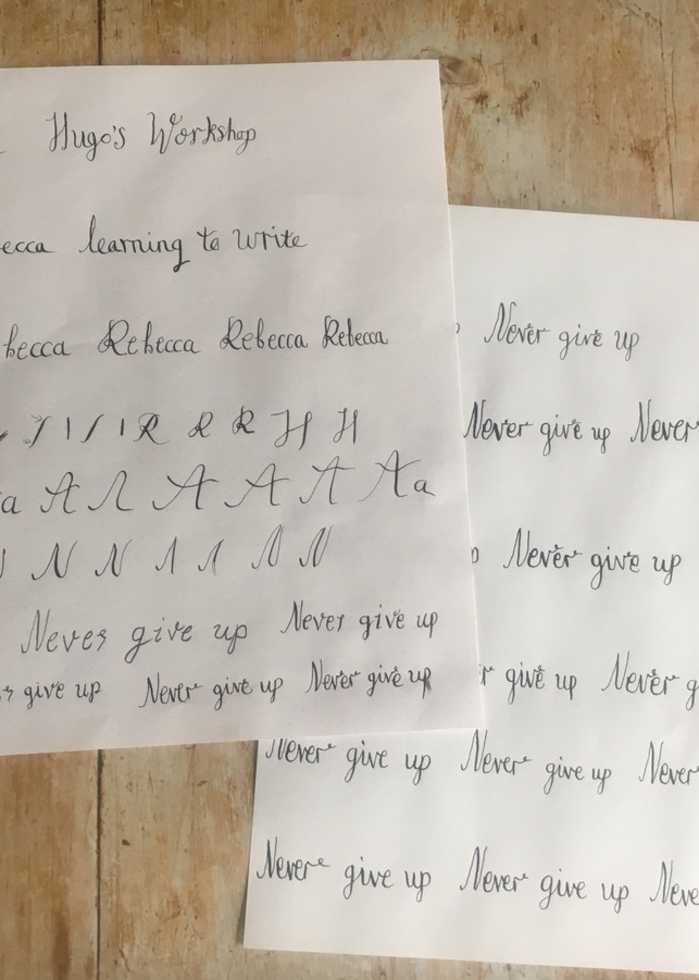 Hugo's Workshop
ecca learning to write
becca Rebecca Rebecca Rebecca
R R R H H
a A A A A A Aa
N N N N N
Never give up Never give up
give up Never give up Never give up
Never give up
Never give up Never
Never give up
give up Never g
Never give up Never give up Never
Never give up Never give up Neve